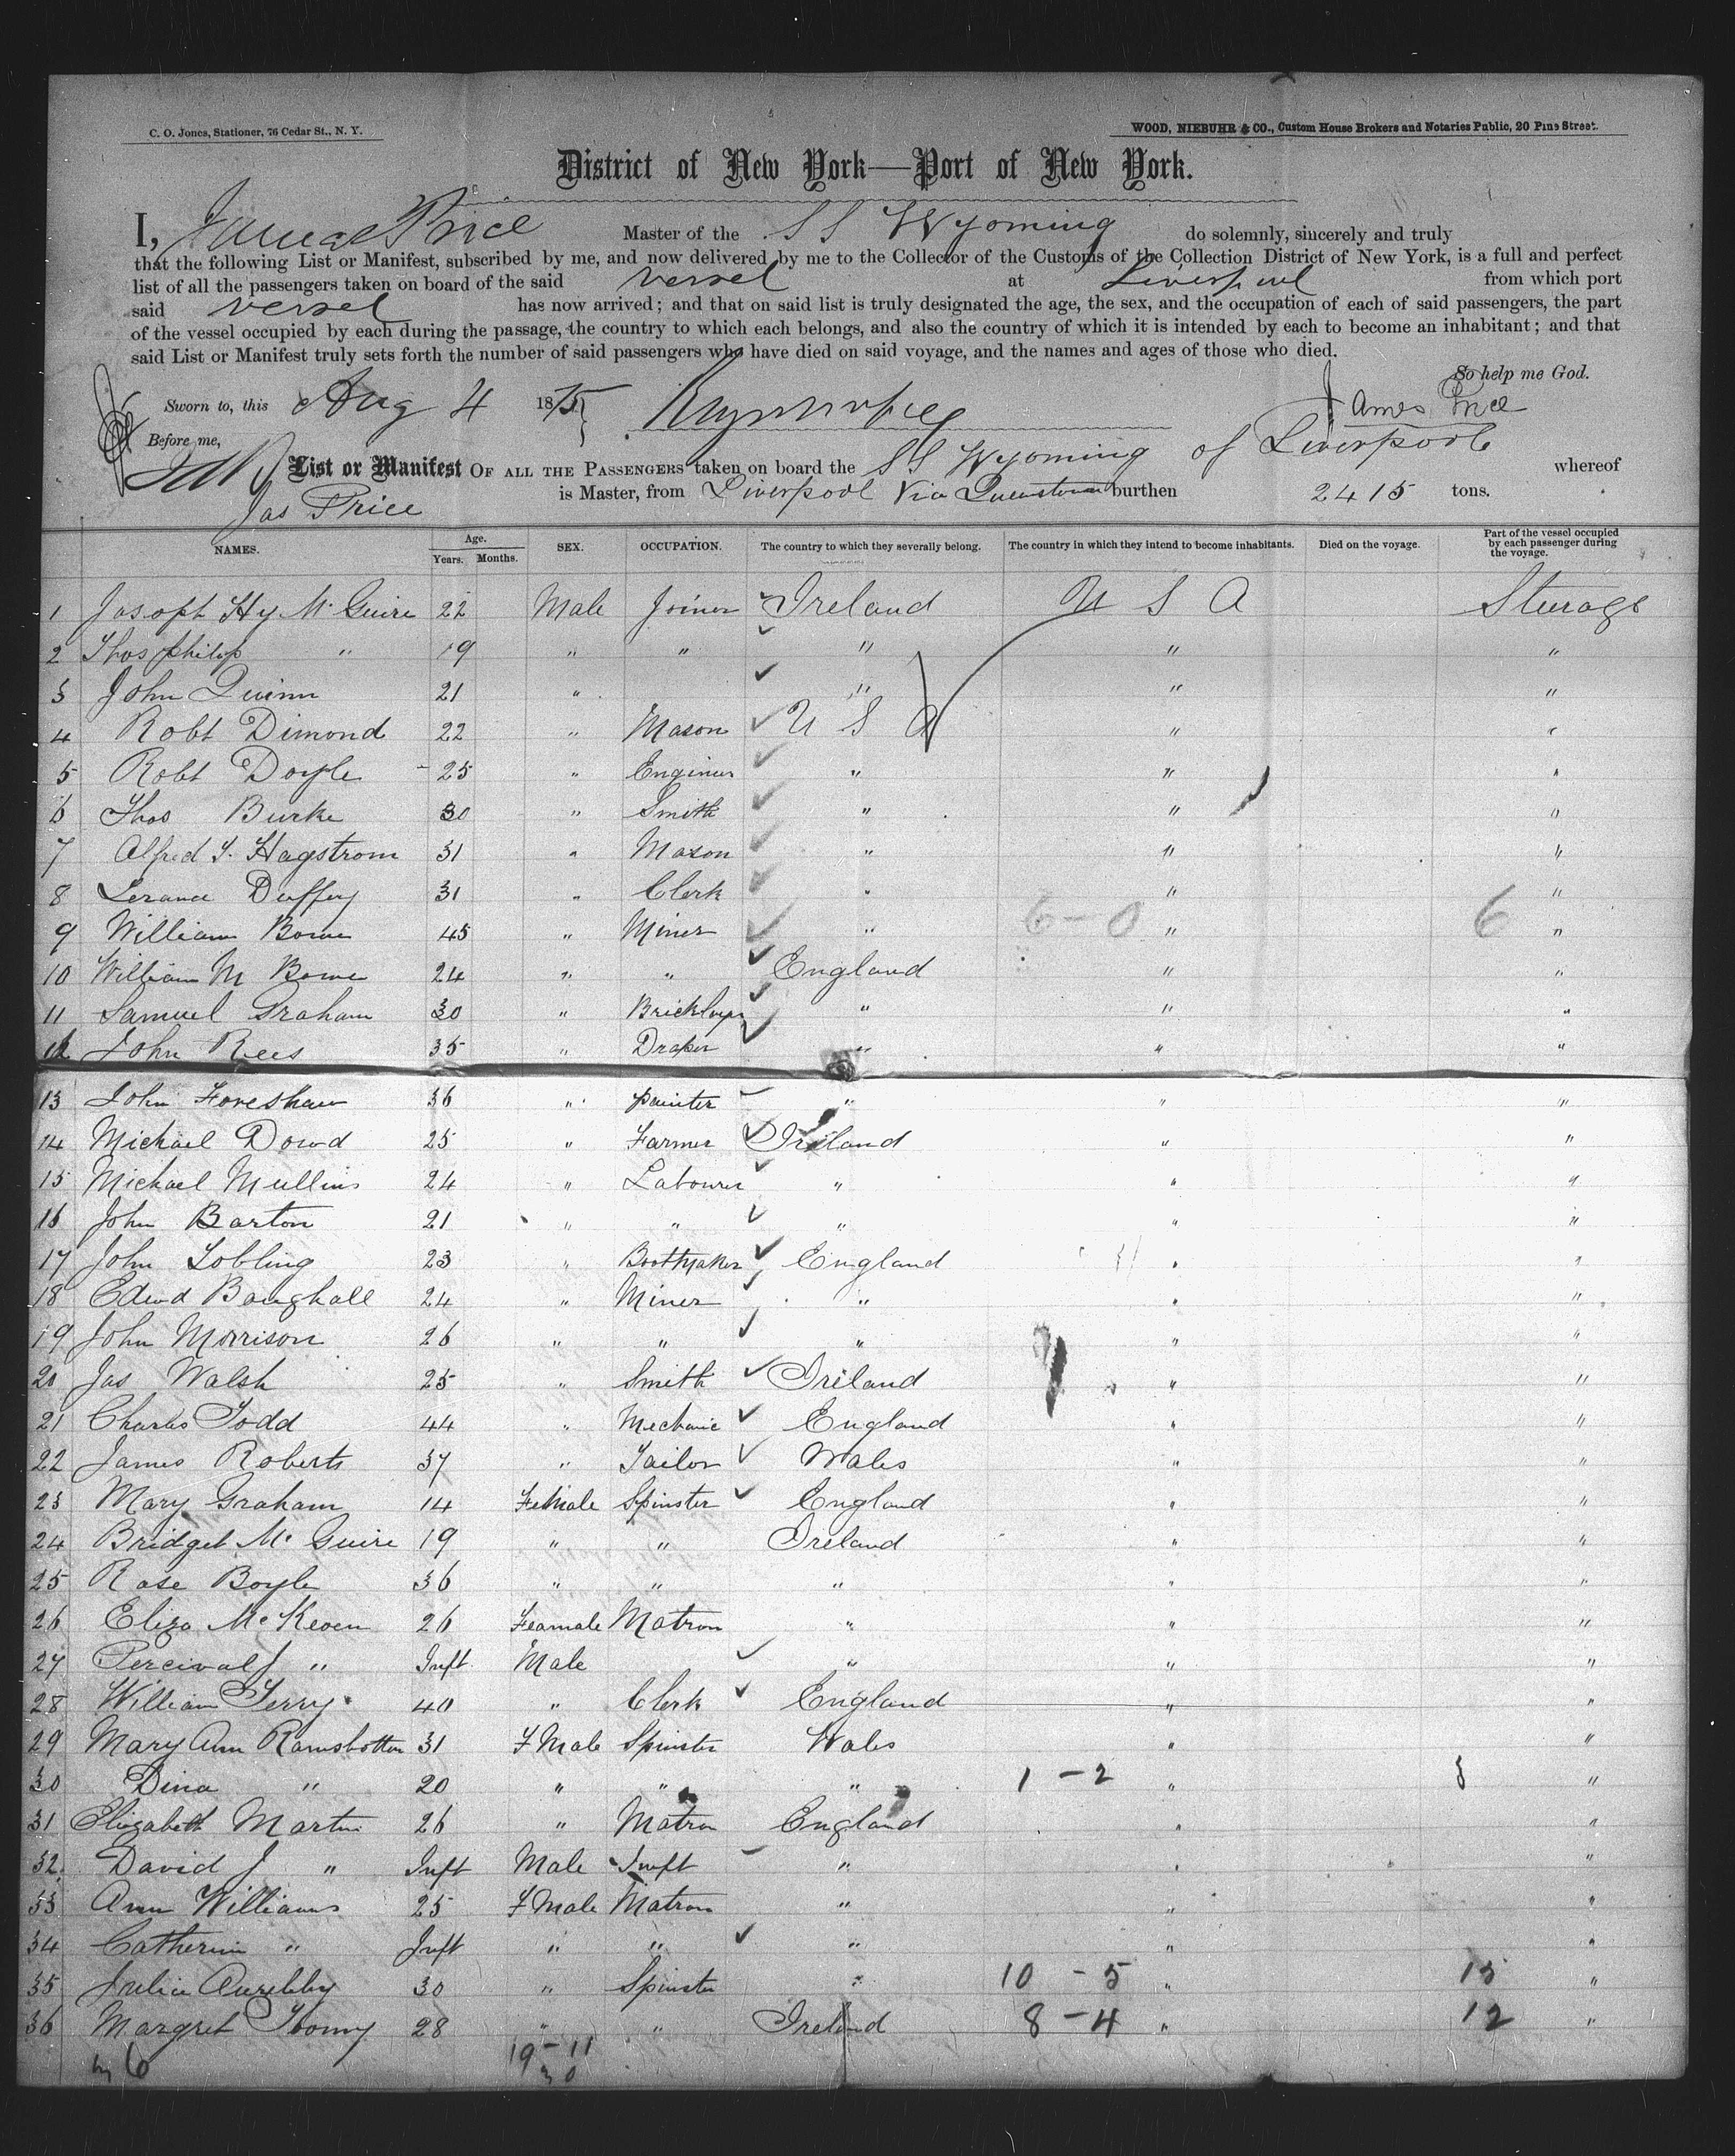 C. O. Jones, Stationer, 76 Cedar St., N. Y.
WOOD, NIEBUHR & CO., Custom House Brokers and Notaries Public, 20 Pine Street.
District of New York—Port of New York.
I, James Price Master of the SS Wyoming do solemnly, sincerely and truly
that the following List or Manifest, subscribed by me, and now delivered by me to the Collector of the Customs of the Collection District of New York, is a full and perfect
list of all the passengers taken on board of the said vessel at Liverpool from which port
said vessel has now arrived; and that on said list is truly designated the age, the sex, and the occupation of each of said passengers, the part
of the vessel occupied by each during the passage, the country to which each belongs, and also the country of which it is intended by each to become an inhabitant; and that
said List or Manifest truly sets forth the number of said passengers who have died on said voyage, and the names and ages of those who died.
So help me God.
Sworn to, this Aug 4 1875 James Price
Before me,
List or Manifest OF ALL THE PASSENGERS taken on board the SS Wyoming of Liverpool whereof
Jas Price is Master, from Liverpool Via Queenstown burthen 2415 tons.
NAMES. Age. Years. Months. SEX. OCCUPATION. The country to which they severally belong. The country in which they intend to become inhabitants. Died on the voyage. Part of the vessel occupied by each passenger during the voyage.
1 Hy Mc Guire 22 Male Joiner Ireland U S A Sturage
2 Thos " 19 " " " " "
3 John Quinn 21 " " " "
4 Robt Dimond 22 " Mason U S A " "
5 Robt Doyle 25 " Enginer " " "
6 Thos Burke 30 " Smith " " "
7 Alfred Hagstrom 31 " Mason " " "
8 Duffey 31 " Clerk " " "
9 William Bowe 45 " Miner " 6 - 0 " 6 "
10 William M Bowe 24 " " England " "
11 Samuel Graham 30 " " " "
12 John Rees 35 " Draper " " "
13 John Foreshaw 36 " painter " " "
14 Michael Dowd 25 " Farmer Ireland " "
15 Michael Mullins 24 " Labourer " " "
16 John Barton 21 " " " " "
17 John 23 " Bootmaker England " "
18 Edwd 24 " Miner " " "
19 John Morrison 26 " " " " "
20 Jas Walsh 25 " Smith Ireland " "
21 Charles Todd 44 " Mechanic England " "
22 James Roberts 37 " Tailor Wales " "
23 Mary Graham 14 Female Spinster England " "
24 Bridget Mc Guire 19 " " Ireland " "
25 Rose Boyle 36 " " " " "
26 Eliza Mc Keven 26 Feamale Matron " " "
27 Percival J " Inft Male " " "
28 William Terry 40 " Clerk England " "
29 Mary Ann Ramsbottom 31 F Male Spinster Wales " "
30 Dina " 20 " " " 1 - 2 " 3 "
31 Elizabeth Martin 26 " Matron England " "
32 David J " Inft Male Inft " " "
33 Ann Williams 25 F Male Matron " " "
34 Catherin " Inft " " " " "
35 Julia 30 " Spinster " 10 - 5 " 15 "
36 Margret 28 " " Ireland 8 - 4 " 12 "
19 - 11